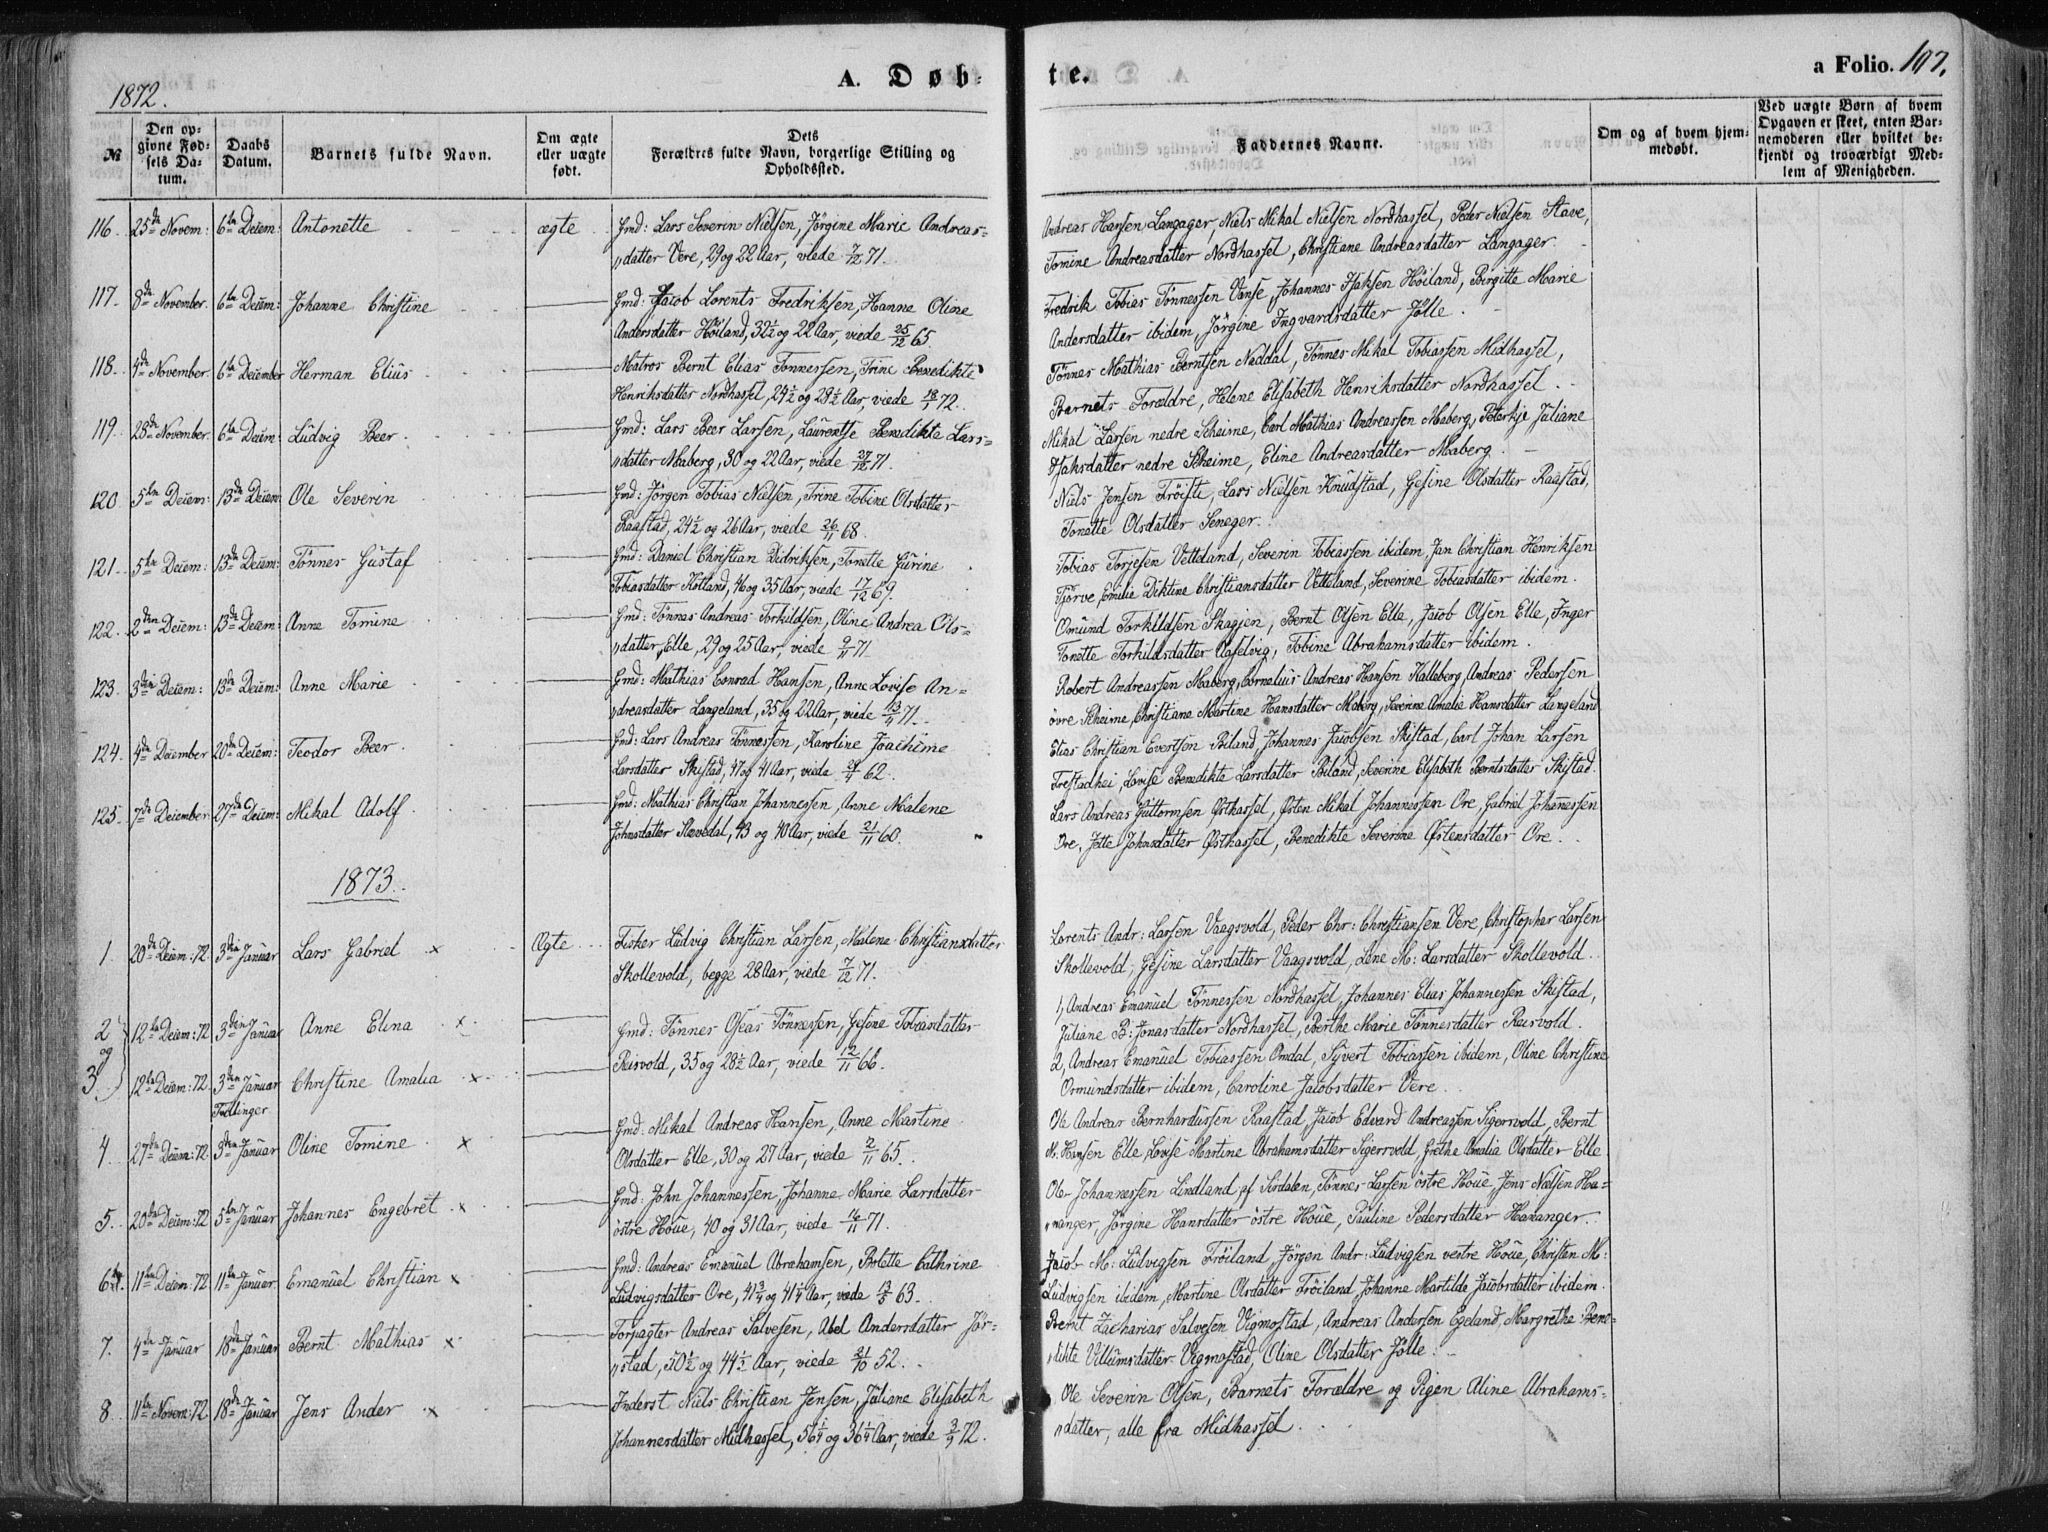 1872.
A. Døb-
te.
a Folio. 107.
№
Den opgivne Fødsels Datum.
Daabs Datum.
Barnets fulde Navn.
Om ægte eller uægte født.
Dets Forældres fulde Navn, borgerlige Stilling og Opholdssted.
Faddernes Navne.
Om og af hvem hjemmedøbt.
Ved uægte Børn af hvem Opgaven er skeet, enten Barnemoderen eller hvilket bekjendt og troværdigt Medlem af Menigheden.
116 25de Novem: 6te Decem: Antonette ægte Gmd: Lars Severin Nielsen, Jörgine Marie Andreas=
"datter Vere, 29 og 22 Aar, viede 7/12 71.
Andreas Hansen Langager, Niels Mikal Nielsen Nordhassel, Peder Nielsen Stave,
Tomine Andreasdatter Nordhassel, Christiane Andreasdatter Langager.
117. 8de November. 6te Decem: Johanne Christine Gmd: Jacob Lorents Fredriksen, Hanne Oline
Andersdatter Höiland, 32½ og 22 Aar, viede 25/12 65.
Fredrik Tobias Tönnessen Vanse, Johannes Isaksen Höiland, Birgitte Marie
Andersdatter ibidem, Jörgine Ingvardsdatter Jölle.
118. 4de November. 6te December Herman Elius Matros Bernt Elias Tönnessen, Trine Benedikte
Henriksdatter Nordhassel, 24½ og 29½ Aar, viede 18/1 72.
Tönnes Mathias Berntsen Neddal, Tönnes Mikal Tobiassen Midhassel,
Barnets Forældre, Helene Elisabeth Henriksdatter Nordhassel.
119. 28de November. 6te Decem: Ludvig Beer Gmd: Lars Beer Larsen, Laurentse Benedikte Lars=
"datter Maberg, 30 og 22 Aar, viede 27/12 71.
Mikal Larsen nedre Skeime, Carl Mathias Andreassen Maberg, Peterkje Juliane
Isaksdatter nedre Skeime, Eline Andreasdatter Maberg.
120 5te Decem: 13de Decem: Ole Severin Gmd: Jörgen Tobias Nielsen, Trine Tobine Olsdatter
Raastad, 24½ og 26 Aar, viede 26/11 68.
Niels Jensen Fröiste, Lars Nielsen Knudstad, Gesine Olsdatter Raastad,
Tonette Olsdatter Seneger.
121. 5te Decem: 13de Decem: Tönnes Gustaf Gmd: Daniel Christian Didriksen, Tonette Gurine
Tobiasdatter Kotland, 46 og 35 Aar, viede 17/12 69.
Tobias Torjesen Vetteland, Severin Tobiassen ibidem, Jan Christian Henriksen
Tjörve, Emilie Diktine Christiansdatter Vetteland, Severine Tobiasdatter ibidem.
122. 2den Decem: 13de Decem: Anne Tomine Gmd: Tönnes Andreas Torkildsen, Oline Andrea Ols=
"datter Elle, 29 og 25 Aar, viede 9/11 71
Omund Torkildsen Skagjen, Bernt Olsen Elle, Jacob Olsen Elle, Inger
Tonette Torkildsdatter Aaselvig, Tobine Abrahamsdatter ibidem.
123. 3die Decem: 13de Decem: Anne Marie Gmd: Mathias Conrad Hansen, Anne Lovise An=
"dreasdatter Langeland, 35 og 22 Aar, viede 13/4 71.
Robert Andreassen Maberg, Cornelius Andreas Hansen Kalleberg, Andreas Pedersen
övre Skeime, Christiane Martine Hansdatter Maberg, Severine Amalie Hansdatter Langeland
124. 4de December 20de Decem: Teodor Beer Gmd: Lars Andreas Tönnessen, Karoline Joachime
Larsdatter Skistad, 47 og 41 Aar, viede 24/4 62.
Elias Christian Evertsen Biland, Johannes Jacobsen Skistad, Carl Johan Larsen
Frestadhei, Lovise Benedikte Larsdatter Biland, Severine Elisabeth Berntsdatter Skistad.
125. 7de December 27de Decem: Mikal Adolf Gmd: Mathias Christian Johannessen, Anne Malene
Johnsdatter Slevedal, 43 og 40 Aar, viede 21/11 60.
Lars Andreas Guttormsen Østhassel, Østen Mikal Johannessen Ore, Gabriel Johannessen
Ore, Jette Johnsdatter Østhassel, Benedikte Severine Østensdatter Ore.
1873.
1. 20de Decem: 72 3die Januar Lars Gabriel x Ægte Fisker Ludvig Christian Larsen, Malene Christiansdatter
Skollevold, begge 28 Aar, viede 7/12 71.
Lorents Andr: Larsen Vaagsvold, Peder Chr: Christiansen Vere, Christopher Larsen
Skollevold, Gesine Larsdatter Vaagsvold, Lene M: Larsdatter Skollevold.
2 12te Decem: 72 3die Januar Anne Elina x Gmd: Tönnes Oseas Tönnessen, Gesine Tobiasdatter
og
3. 12te Decem: 72. 3die Januar Christine Amalia x Reisvold, 35 og 28½ Aar, viede 12/11 66.
Tvillinger
1, Andreas Emanuel Tönnessen Nordhassel, Johannes Elias Johannessen Skistad,
Juliane B: Jonasdatter Nordhassel, Berthe Marie Tönnesdatter Reisvold.
2, Andreas Emanuel Tobiassen Omdal, Syvert Tobiassen ibidem, Oline Christine
Osmundsdatter ibidem, Caroline Jacobsdatter Vere.
4 27de Decem: 72 3die Januar Oline Tomine x Gmd: Mikal Andreas Hansen, Anne Martine
Olsdatter Elle, 30 og 27 Aar, viede 2/11 65.
Ole Andreas Bernhardussen Raastad, Jacob Edvard Andreassen Sigersvold, Bernt
M. Hansen Elle, Lovise Martine Abrahamsdatter Sigersvold, Grethe Amalia Olsdatter Elle
5. 20de Decem: 72 5te Januar Johannes Engebret x Gmd: John Johannessen, Johanne Marie Larsdatter
östre Houe, 40 og 31 Aar, viede 16/11 71.
Ole Johannessen Lindland af Sirdalen, Tönnes Larsen östre Houe, Jens Nielsen Ha=
"nanger, Jörgine Hansdatter östre Houe, Pauline Pedersdatter Hananger.
6. 11te Decem: 72 11te Januar Emanuel Christian x Gmd: Andreas Emanuel Abrahamsen, Bolette Cathrine
Ludvigsdatter Ore, 41¾ og 41¼ Aar, viede 13/5 63.
Jacob M: Ludvigsen Fröiland, Jörgen Andr: Ludvigsen vestre Houe, Christen M:
Ludvigsen ibidem, Martine Olsdatter Fröiland, Johanne Martilde Jacobsdatter ibidem.
7. 4de Januar 18de Januar Bernt Mathias x Forpagter Andreas Salvesen, Abel Andersdatter Jör=
"stad, 50½ og 44½ Aar, viede 31/10 52.
Bernt Zacharias Salvesen Vigmostad, Andreas Andersen Egeland, Margrethe Bene=
"dikte Villumsdatter Vigmostad, Oline Olsdatter Jölle.
8 11te Novem: 72 18de Januar Jens Ander x Inderst Niels Christian Jensen, Juliane Elisabeth
Johannesdatter Midhassel, 56¼ og 36¼ Aar, viede 3/9 72.
Ole Severin Olsen, Barnets Forældre og Pigen Aline Abrahams=
"datter, alle fra Midhassel.